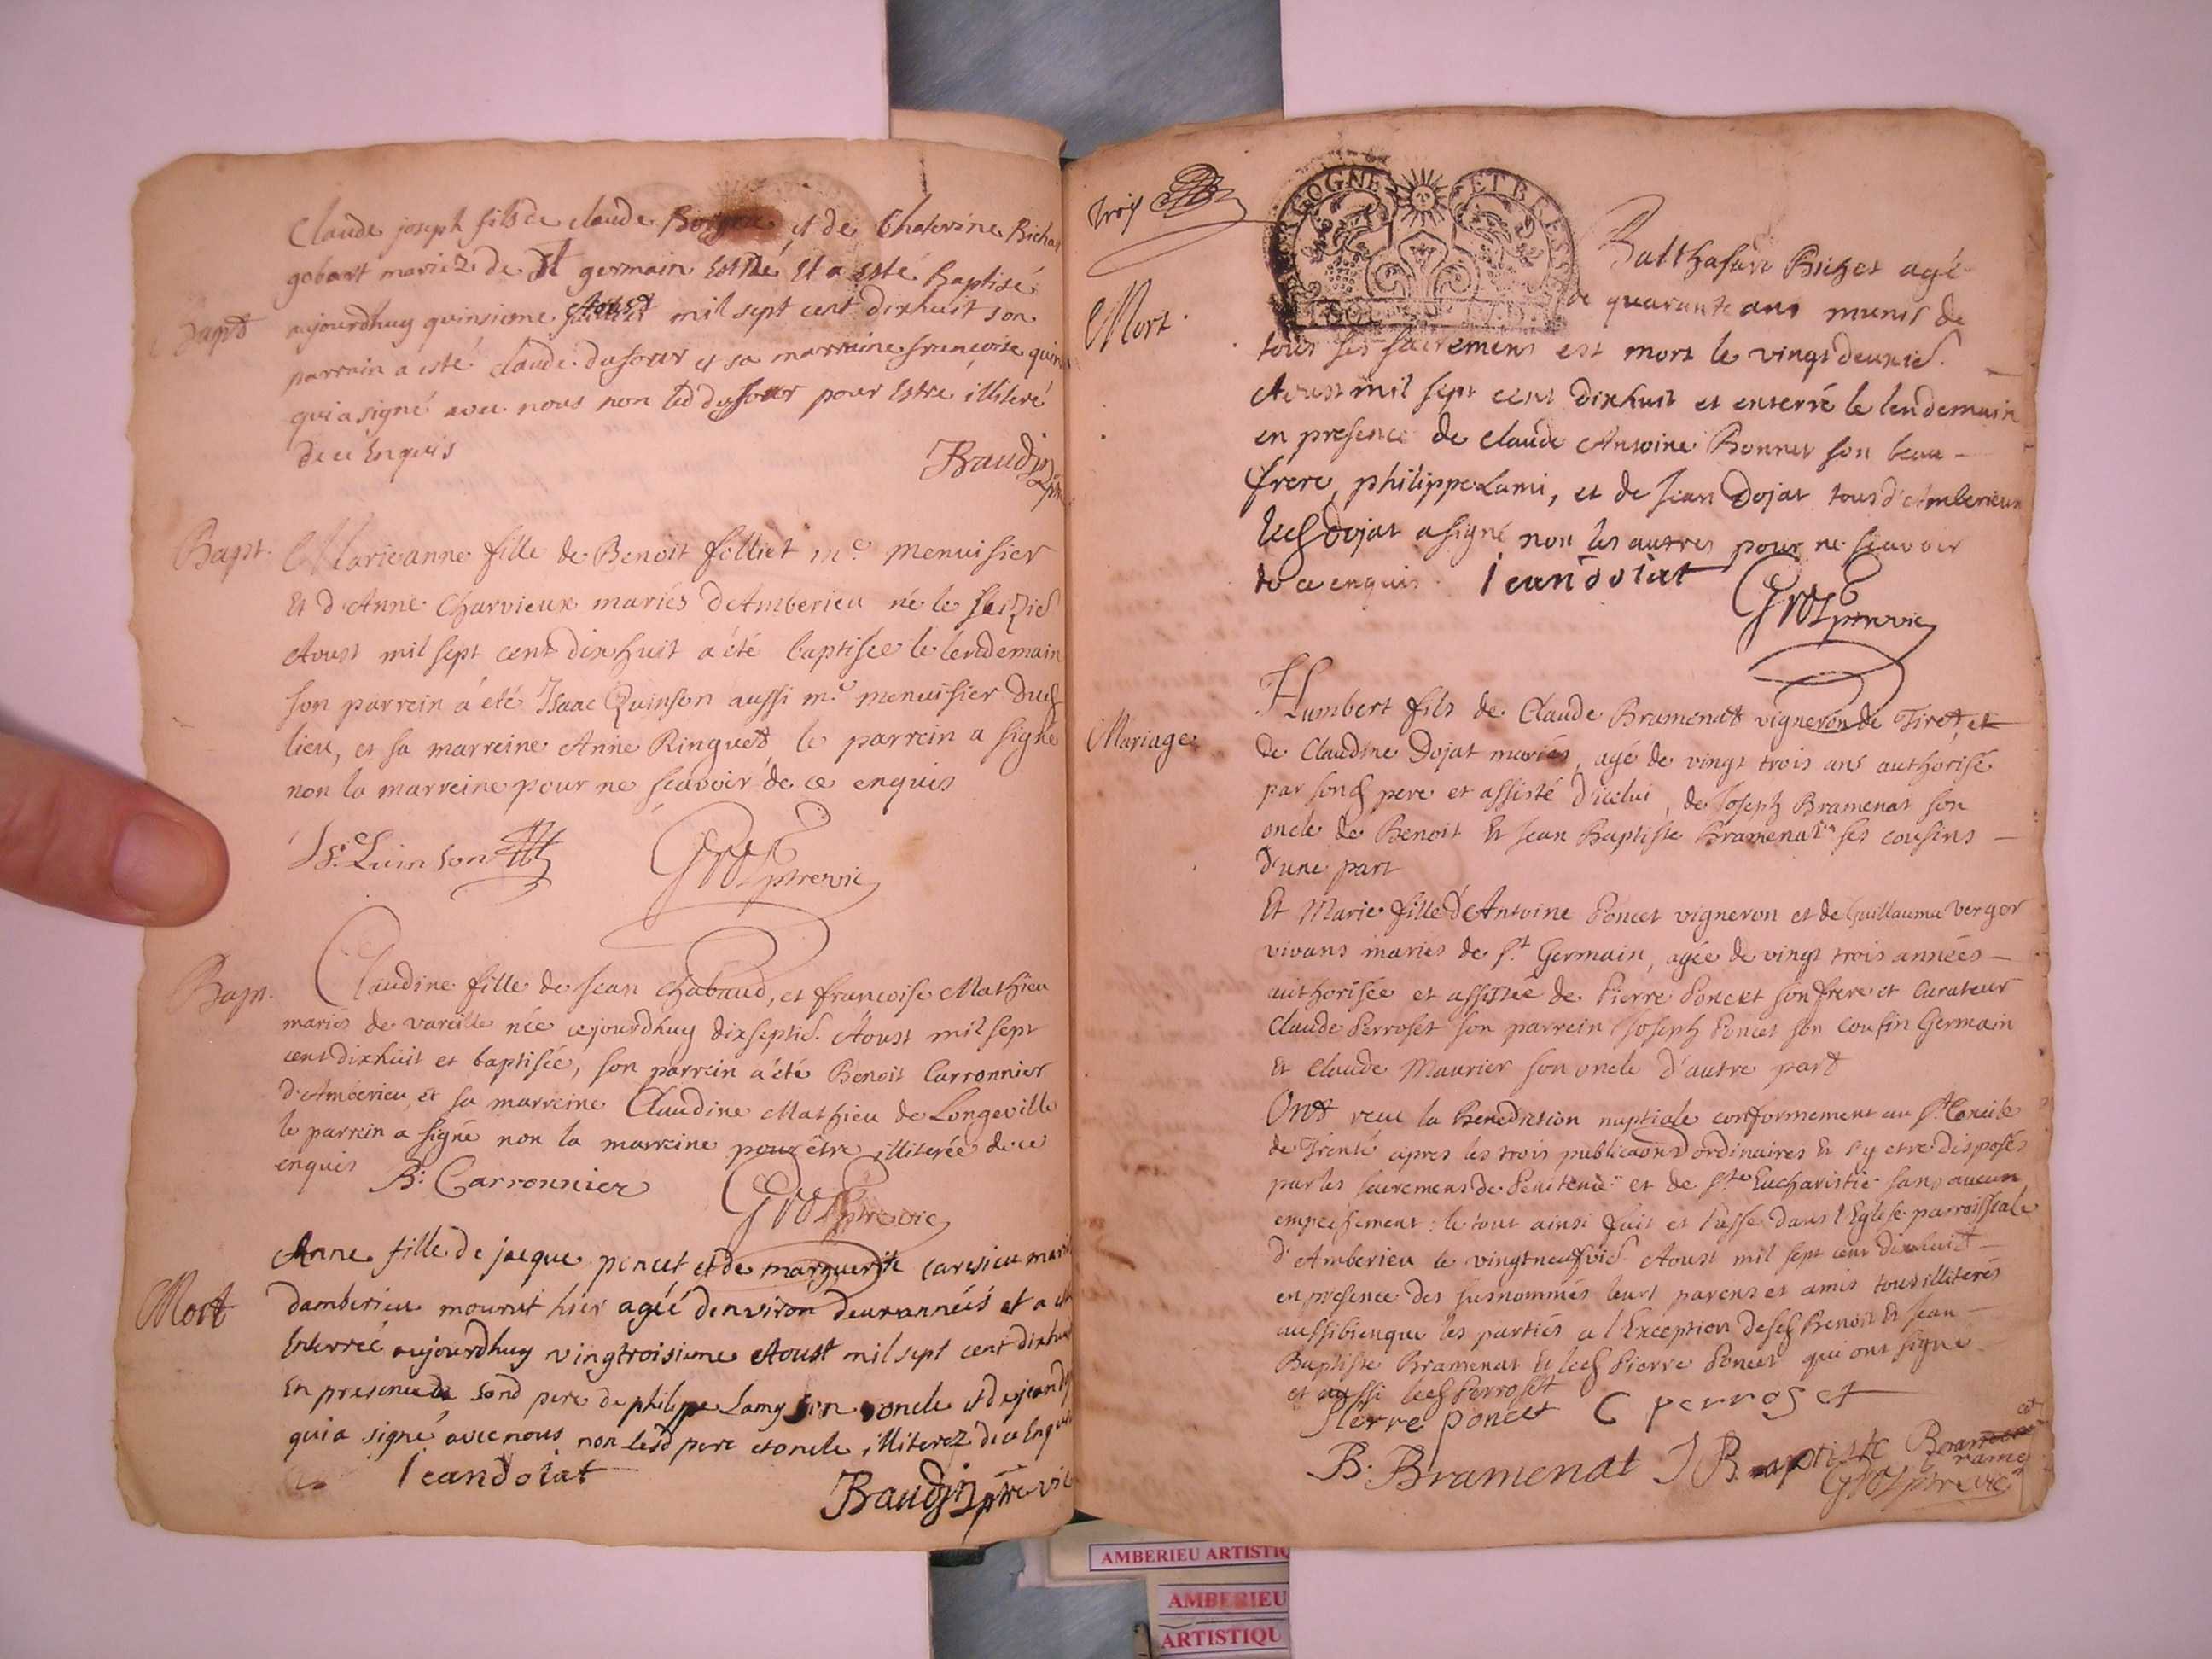 Claude joseph fils de claude et de Chaterine Richa
gobart mariez de St germain est né et a esté Baptisé
Bapt
aujourdhuy quinsieme Aoust mil sept cent dixhuit son
parrain a esté claude dufour et sa marraine francoise quin
qui a signé avec nous non led dufour pour estre illiteré
de ce enquis
Baudin
Bapt.
Marieanne fille de Benoit folliet me. menuisier
Et d'Anne Charvieux mariés d'Amberieu né le seizie
Aoust mil sept cent dixhuit a été baptisée le lendemain
son parrein a été Isaac Quinson aussi me. menuisier dud
lieu, et sa marreine Anne Ringuet, le parrein a signé
non la marreine pour ne scavoir de ce enquis
Is. Quinson
Gros ptre vic
Bapt.
Claudine fille de Jean Chabaud, et francoise Mathieu
mariés de vareille née cejourdhuy dixseptie. Aoust mil sept
cent dixhuit et baptisée, son parrein a été Benoit Carronnier
d'Amberieu, et sa marreine Claudine Mathieu de Longeville
le parrein a signé non la marreine pour être illiterée de ce
enquis
B: Carronnier
Gros ptre vic
Mort
Anne fille de jacque poncet et de marguerite carrsieu mari
damberieu mourut hier agéé denviron deux annéés et a est
Enterréé aujourdhuy vingtroisieme Aoust mil sept cent dixhui
En presence de sond pere de philippe Lamy son oncle et de jean d
qui a signé avec nous non lesd pere et oncle illiterez de ce Enqui
jeandoiat
Baudin ptre vic
trois
GOGNE ET BRESS
Mort.
Balthasard Brichet agé
de quarante ans munis de
tous ses sacremens est mort le vingt deuxie.
Aoust mil sept cent dixhuit et enterré le lendemain
en presence de claude Antoine Bonnet son beau-
frere, philippe Lami, et de Jean Dojat tous d'Amberieux
led Dojat a signé non les autres pour ne scavoir
de ce enquis. jeandoiat
Gros ptre vic
Mariage
Humbert fils de Claude Bramenat vigneron de Tiret, et
de Claudine Dojat mariés, agé de vingt trois ans authorisé
par sond pere et assisté d'icelui, de Joseph Bramenat son
oncle de Benoit Et Jean Baptiste Bramenat ses cousins
d'une part
Et Marie fille d'Antoine Poncet vigneron et de Guillauma Verger
vivans mariés de St. Germain, agée de vingt trois années
authorisée et assistée de Pierre Poncet son frere et Curateur
Claude Perroset son parrein Joseph Poncet son cousin Germain
Et Claude Maurier son oncle d'autre part
Ont receu la Benediction nuptiale conformement au St. Concile
de Trente apres les trois publicaons ordinaires Et s'y etre disposés
par les sacremens de Penitence et de Ste Eucharistie sans aucun
empechement: le tout ainsi fait et Passé dans l'Eglise parroissiale
d'Amberieu le vingtneufvie Aoust mil sept cent dixhuit
en presence des susnommés leurs parens et amis tous illiterés
aussibienque les parties a l'Exception desd Benoit Et Jean
Baptiste Bramenat Et led Pierre Poncet qui ont signé
et aussi led Perroset
Pierre poncet C perroset
B. Bramenat J Baptiste
Gros ptre vic
AMBERIEU ARTISTIQ
AMBERIEU
ARTISTIQU